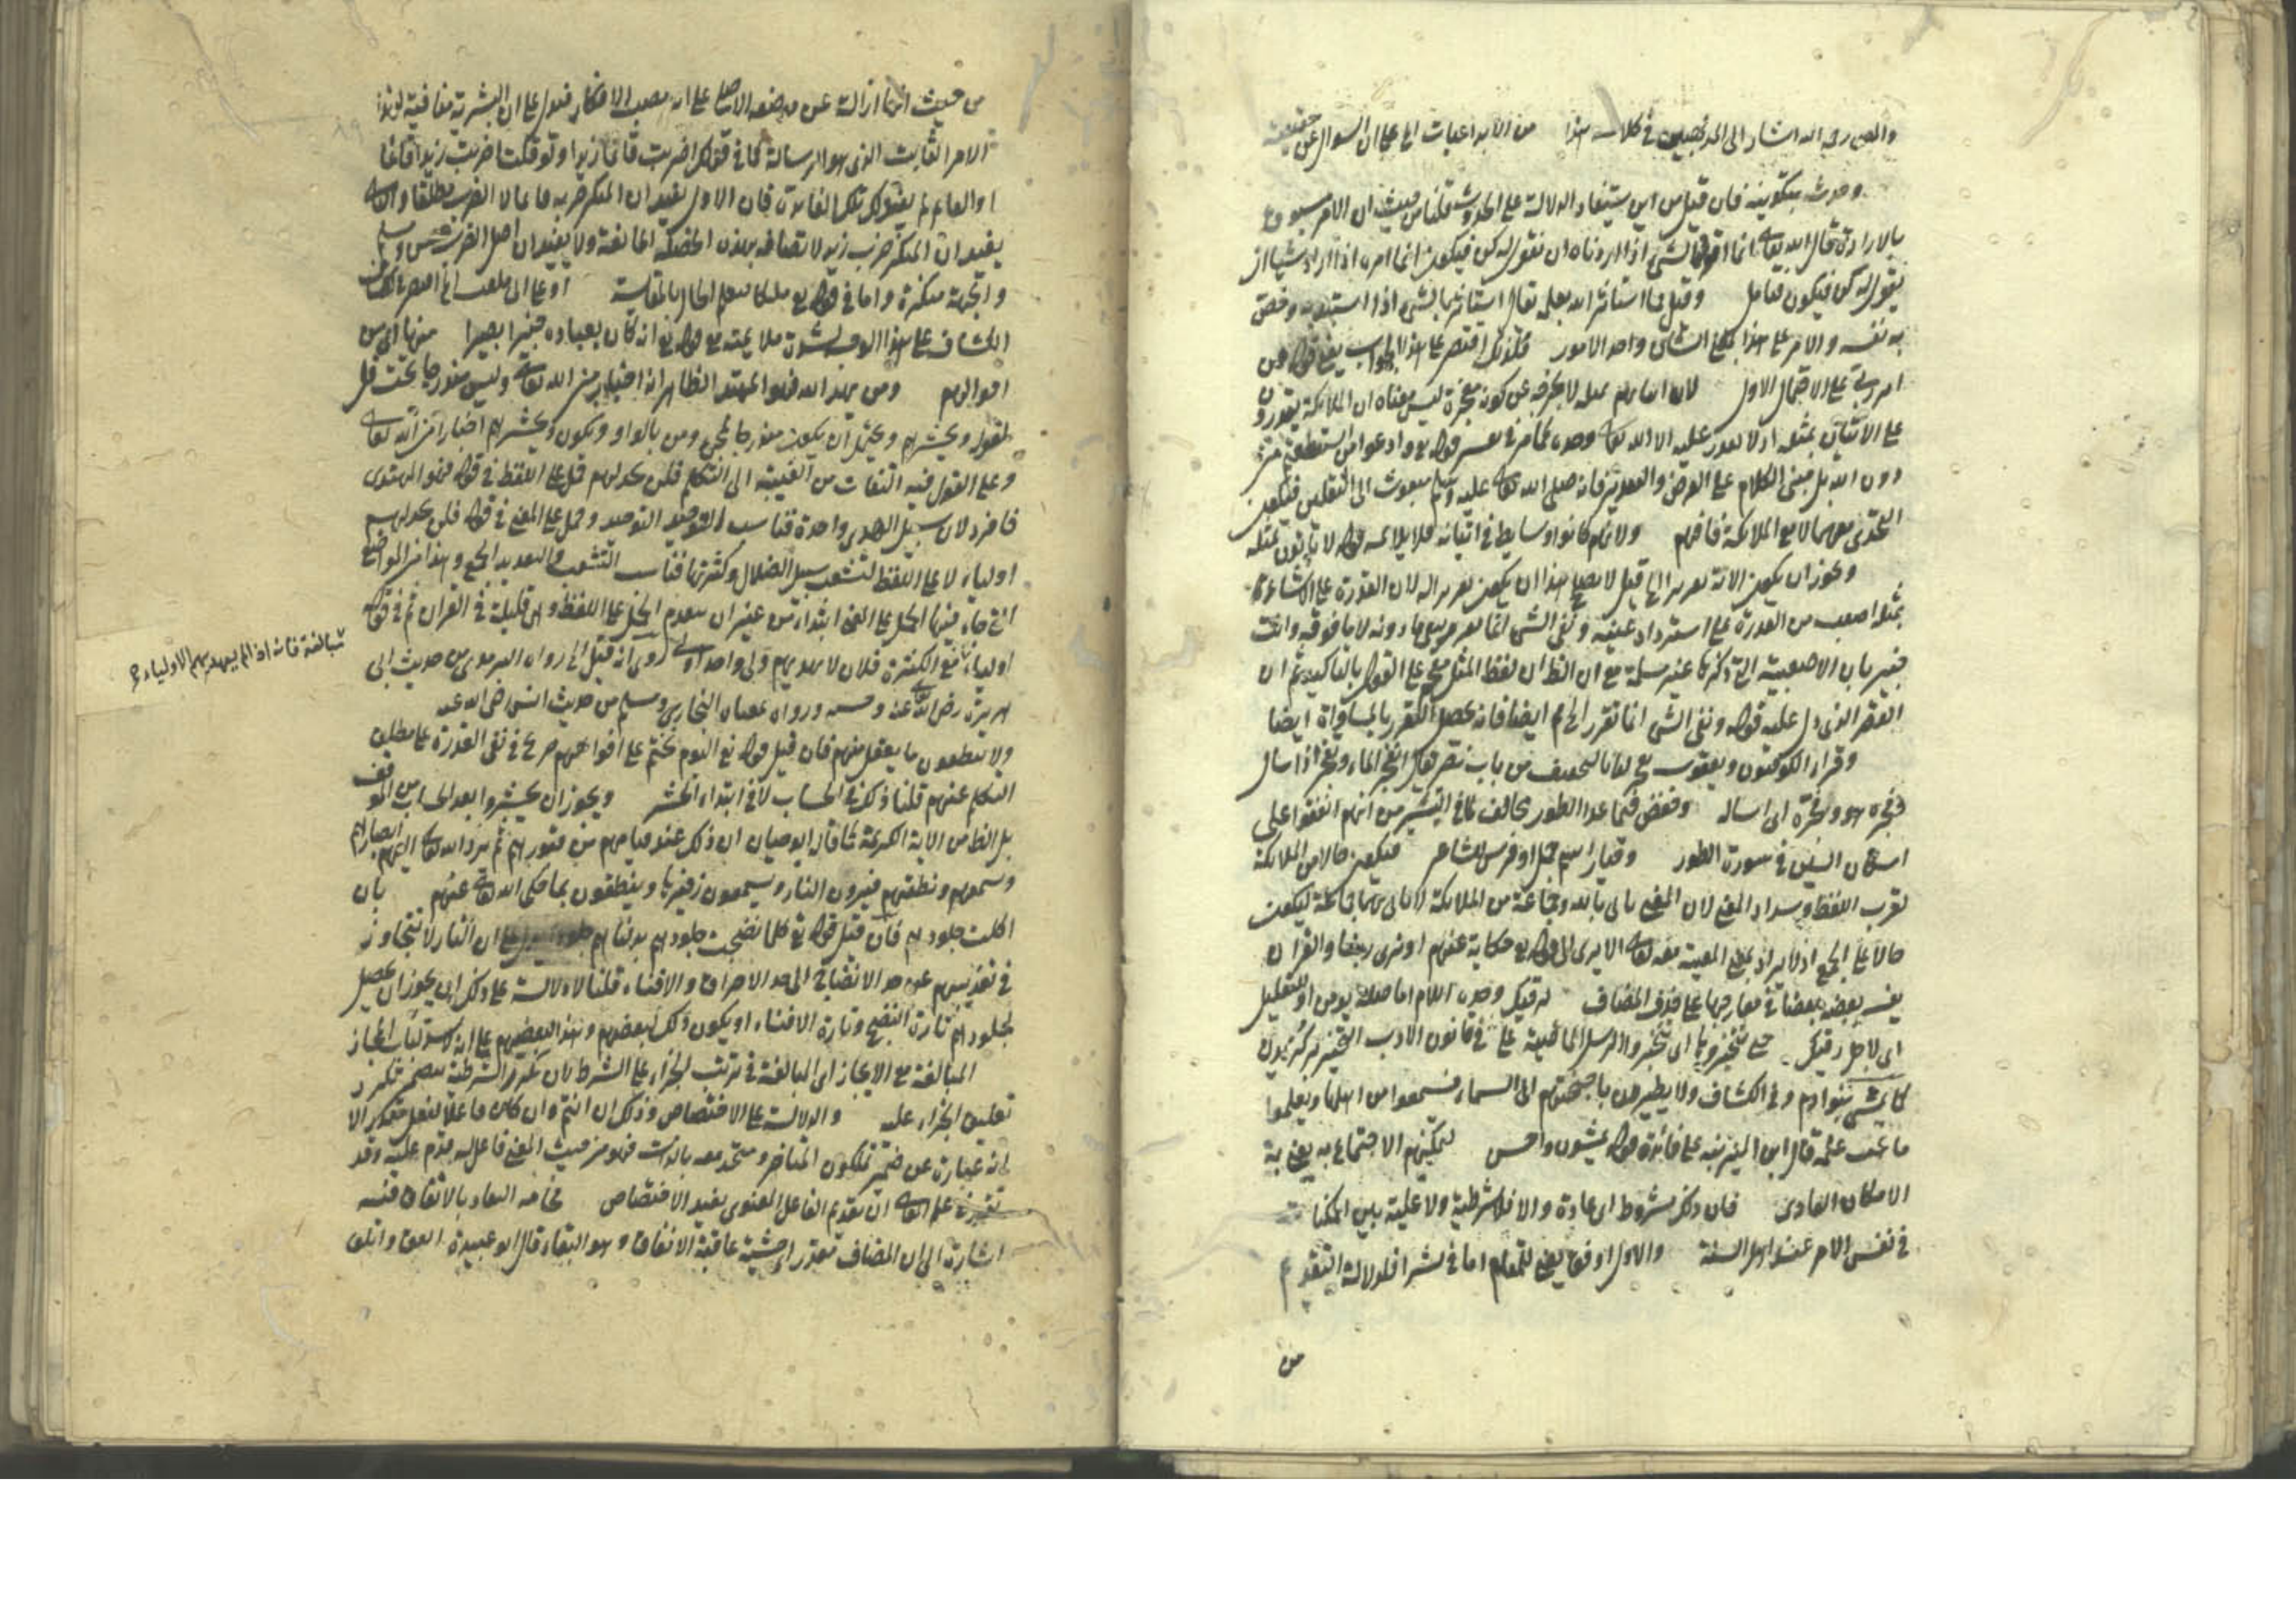 والمص رحمه الله اشار الى المرتضيين في كلامه هذا من الابداعيات اي على ان السوال عن حقيقته
وحدث بتكوينه فان قيل من اين يستفاد الدلالة على الحدوث قلنا من حيث ان الامر مسبوق
بالارادة قال الله تعالى انما قولنا لشئ اذا اردناه ان نقول له كن فيكون انما امره اذا اراد شيئا ان
يقول له كن فيكون فتامل وقيل مما استأثر الله بعلمه يقال استأثر بالشئ اذا استبد به وخص
به نفسه والامر على هذا بمعنى الشان واحد الامور فلذلك اقتصر على هذا الجواب يعني قوله من
امر ربي على الاحتمال الاول لان اتيانهم بمثله لا يخرجه عن كونه معجزة ليس معناه ان الملائكة يقدرون
على الاتيان بمثله اذ لا يقدر عليه الا الله تعالى وحده كما مر في تفسير قوله تع وادعوا من استطعتم من
دون الله بل مبنى الكلام على الفرض والتقدير فانه صلى الله تعالى عليه وسلم مبعوث الى الثقلين فيكون
التحدي معهما لا مع الملائكة فافهم ولانهم كانوا وسايط في اتيانه فلا يلايمه قوله لا يأتون بمثله
ويجوز ان يكون الاية تقريرا الخ قيل لا يصلح هذا ان يكون تقريرا له لان القدرة على
بمثله اصعب من القدرة على استرداد عينه ونفي الشئ انما يقرره نفي ما دونه لا ما فوقه وانت
خبير بان الاصعبية التي ذكرها غير مسلمة مع ان الظ ان لفظ المثل مقحم على القول بالتاكيد ثم ان
القصر الذي دل عليه قوله ونفي الشئ انما تقرر الخ مم ايضا فانه يحصل التقرير بالمساواة ايضا
وقراء الكوفيون ويعقوب تفجر لنا بالتخفيف من باب نصر يقال انفجر الماء وتفجر اذا سال
وفجره هو وفجره اى اساله وحفص فيما عدا الطور يخالف لما في التيسير من انهم اتفقوا على
اسكان السين في سورة الطور وقيار اسم جمل او فرس للشاعر فيكون حالا من الملائكة
لقرب اللفظ وسداد المعنى لان المعنى تاتي بالله وجماعة من الملائكة لا تاتي بهما جماعة ليكون
حالا على الجمع اذ لا يراد بمعنى المعية معه تعالى الا يرى الى قوله تع حكاية عنهم او نرى ربنا والقران
يفسر بعضه بعضا في معارجها على حذف المضاف لرقيك وحده اللام اما صلة نؤمن او للتعليل
اى لاجل رقيك حتى تتخيروها اى تتخيروا الرسل الماضية على في قانون الادب التخير بركزيدن
كما يمشي بنو ادم وفي الكشاف ولا يطيرون باجنحتهم الى السماء فيسمعوا من اهلها ويعلموا
ما يجب علمه قال ابن المنير نبه على فائدة قوله يمشون واحسن لتمكينهم الاجتماع به يعني به
الامكان العادي فان ذلك مشروط اى عادة والا فلا شرطية ولا علية بين الممكنات
في نفس الامر عند اهل السنة والاول اوفق يعني للمقام اما في بشرا فلدلالة التقديم
من
من حيث انها ازالة عن موضعه الاصلي على انه مصب الانكار فيدل على ان البشرية منافية لهذا
الامر الثابت الذي هو الرسالة كما في قولك اضربت قائما زيدا ولو قلت اضربت زيدا قائما
او القائم لم يفد ذلك تلك الفائدة فان الاول يفيد ان المنكر ضربه قائما لا الضرب مطلقا والثاني
يفيد ان المنكر ضرب زيد لاتصافه بهذه الصفة المانعة ولا يفيد ان اصل الضرب حسن ومسلم
والجهة منكرة واما في قوله تع ملكا فيعلم الحال بالمقايسة او على الى بلغت الخ اقتصر صاحب
الكشاف على هذا الوجه لشدة ملايمته مع قوله تع انه كان بعباده خبيرا بصيرا منها اى من
اقوالهم ومن يهد الله فهو المهتد الظاهر انه اخبار من الله تعالى وليس مندرجا تحت قل
لقوله ونحشرهم ويحتمل ان يكون مندرجا لمجئ ومن بالواو ويكون ونحشرهم اخبارا من الله تعالى
وعلى القول فيه التفات من الغيبة الى التكلم فلن تجد لهم حمل على اللفظ في قوله فهو المهتدى
فافرد لان سبيل الهدى واحدة فناسب التوحيد التوحيد وحمل على المعنى في قوله فلن تجد لهم
اولياء لا على اللفظ لتشعب سبل الضلال وكثرتها فناسب التشعب والتعديد الجمع وهذا من المواضع
التي جاء فيها الحمل على المعنى ابتداء من غير ان يتقدم الحمل على اللفظ وهي قليلة في القران ثم في قوله
اولياء مبالغة فانه اذا لم يهدهم الاولياء
اولياء نفي الكثرة فلان لا يهديهم ولي واحد اولى روى انه قيل الخ رواه الترمذي من حديث ابي
هريرة رضى الله عنه وحسنه ورواه بمعناه البخاري ومسلم من حديث انس رضى الله عنه
ولا ينطقون ما يقبل منهم فان قيل قوله تع اليوم نختم على افواههم صريح في نفي القدرة على مطلق
التكلم عنهم قلنا ذلك في الحساب لا في ابتداء الحشر ويجوز ان يحشروا بعد الحساب من الموقف
بل الظ من الاية الكريمة ما قال ابو حيان ان ذلك عند قيامهم من قبورهم ثم يرد الله تعالى اليهم ابصارهم
وسمعهم ونطقهم فيرون النار ويسمعون زفيرها وينطقون بما حكى الله تعالى عنهم بان
اكلت جلودهم فان قيل قوله تع كلما نضجت جلودهم بدلناهم جلودا يدل على ان النار لا تتجاوز
في تعذيبهم عن حد الانضاج الى حد الاحراق والافناء قلنا لا دلالة على ذلك اى يجوز ان يحصل
لجلودهم تارة النضج وتارة الافناء او يكون ذلك لبعضهم وهذا لبعضهم على انه لا سد لباب المجاز
المبالغة مع الايجاز اى المبالغة في ترتب الجزاء على الشرط بان تكرر الشرطية يتضمن تكرر
تعليق الجزاء عليه والدلالة على الاختصاص وذلك ان انتم وان كان فاعلا لفعل مقدر الا
انه عبارة عن ضمير تملكون المتاخر ومتحد معه بالذات فهو من حيث المعنى فاعل له مقدم عليه وقد
تقرر في علم المعاني ان تقديم الفاعل المعنوي يفيد الاختصاص مخافة النفاد بالانفاق فيه
اشارة الى ان المضاف مقدر اى خشية عاقبة الانفاق وهو النفاد قال ابو عبيدة انفق واملق